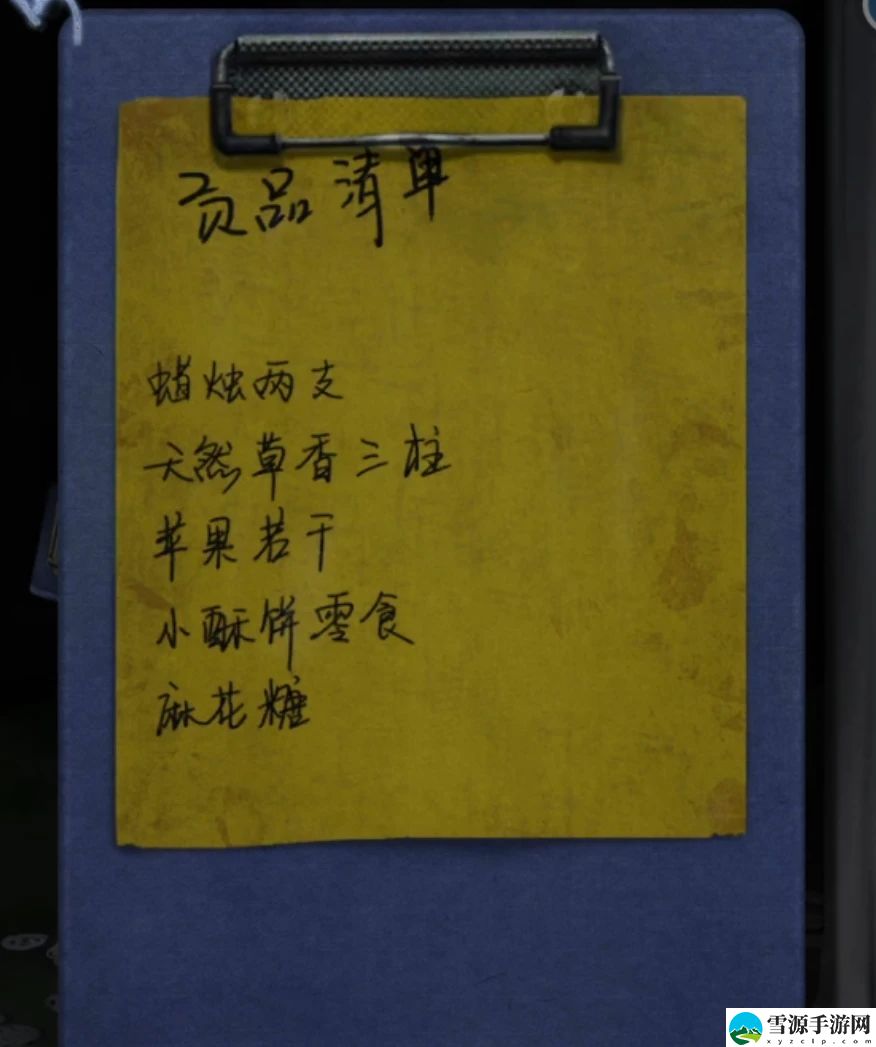 贡品清单
蜡烛两支
天然草香三柱
苹果若干
小酥饼零食
麻花糖
雪源手游网
xyzclp.com